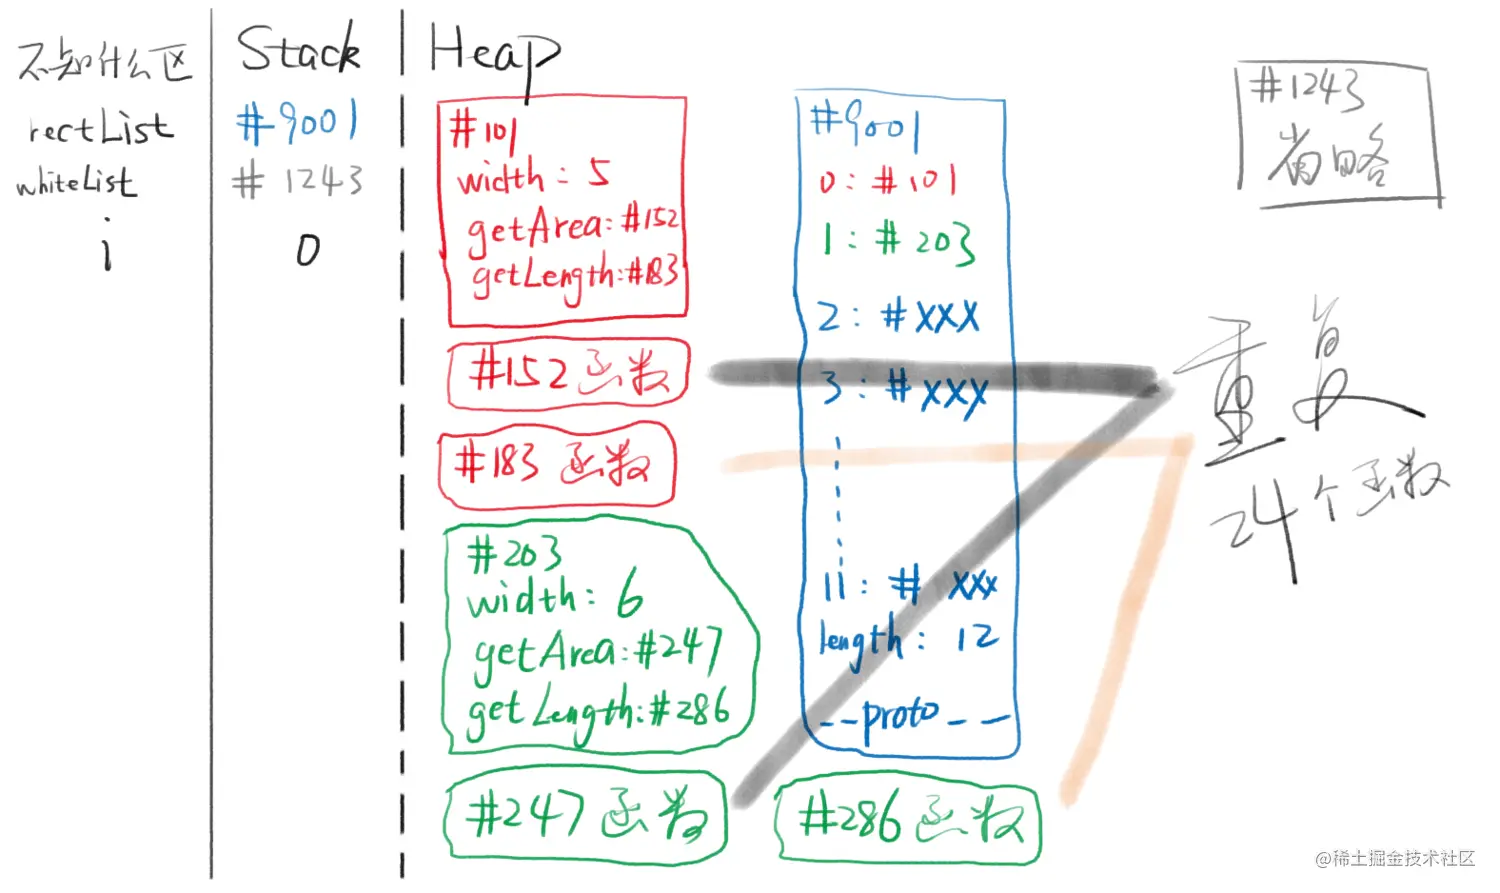 不知什么区
Stack
Heap
rectList
#9001
whiteList
#1243
i
0
#101
width: 5
getArea:#152
getLength:#183
#152 函数
#183 函数
#203
width: 6
getArea:#247
getLength:#286
#247 函数
#9001
0: #101
1: #203
2: #XXX
3: #XXX
11: # XXX
length: 12
--proto--
#286 函数
#1243
省略
重复
24个函数
@稀土掘金技术社区